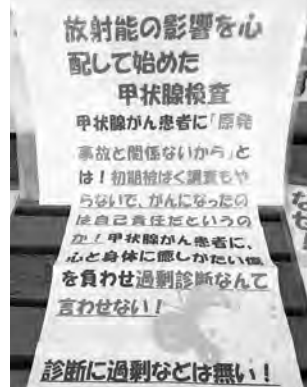 放射能の影響を心
配して始めた
甲状腺検査
甲状腺がん患者に「原発
事故と関係ないから」と
は！初期被ばく調査もや
らないで、がんになったの
は自己責任だというの
か！甲状腺がん患者に、
心と身体に癒しがたい傷
を負わせ過剰診断なんて
言わせない！
診断に過剰などは無い！